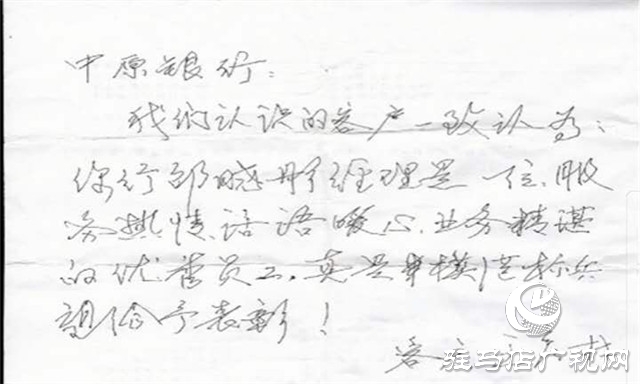 中原银行：
我们认识的客户一致认为：
你行邵晓彤经理是一位、服
务热情、话语暖心、业务精谌
的优秀员工，真是模范标兵
望给予表彰！
客户
驻马店广视网